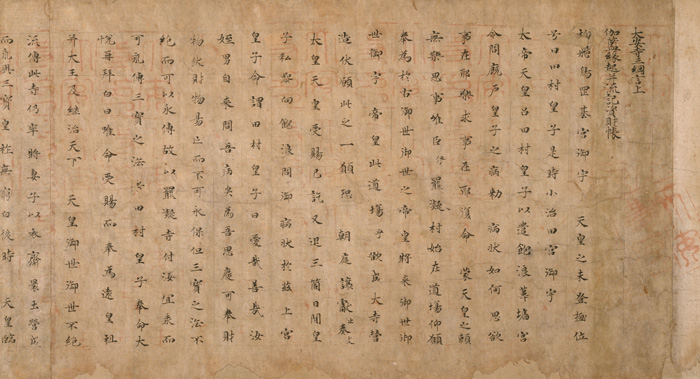 大安寺三綱言上
伽藍縁起并流記資財帳
初飛鳥岡基宮御宇　天皇之未登極位
号曰田村皇子是時小治田宮御宇
太帝天皇召田村皇子以遣飽浪葦墻宮
令問厩戸皇子之病勅　病状如何思欲
事在耶樂求事在耶復命　蒙天皇之頼
無樂思事唯臣羆凝村始在道場仰願
奉為於古御世御世之帝皇将来御世御
世御宇　帝皇此道場乎欲成大寺營
造伏願此之一願恐　朝庭讓獻止奏
太皇天皇受賜已訖又退三箇日間皇
子私参向飽浪問御病状於茲上宮
皇子命謂田村皇子曰愛哉善哉汝
姪男自来問吾病矣為吾思慶可奉財
物然財物易亡而不可永保但三寶之法不
絶而可以永傳故以羆凝寺付汝宜承而
可永傳三寶之法者田村皇子奉命大
悦再拜白曰唯命受賜而奉為遠皇祖
并大王及継治天下　天皇御世御世不絶
流傳此寺仍奉将妻子以衣齋裹土營成
而永興三寶皇祚無窮白後時　天皇臨